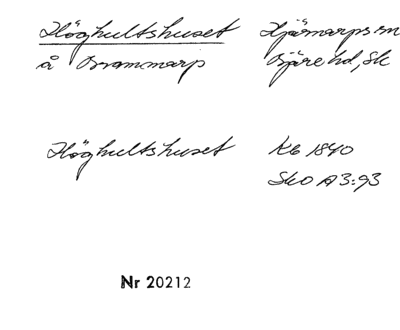 Höghultshuset Hjärnarps sn
å Brammarp Bjäre hd, Sk
Höghultshuset Kb 1840
SkO A3:93
Nr 20212